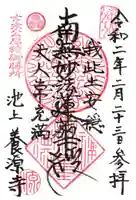 令和二年二月二十三日参拝
我此土安穏
南無妙法蓮華経
天人常充満
池上 養源寺